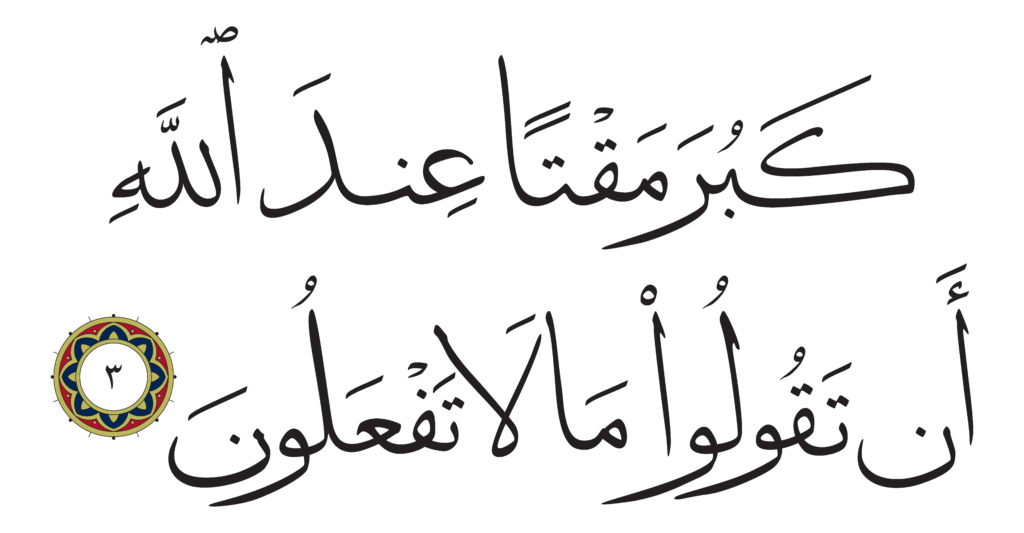 كَبُرَ مَقْتًا عِندَ ٱللَّهِ
أَن تَقُولُوا۟ مَا لَا تَفْعَلُونَ ٣